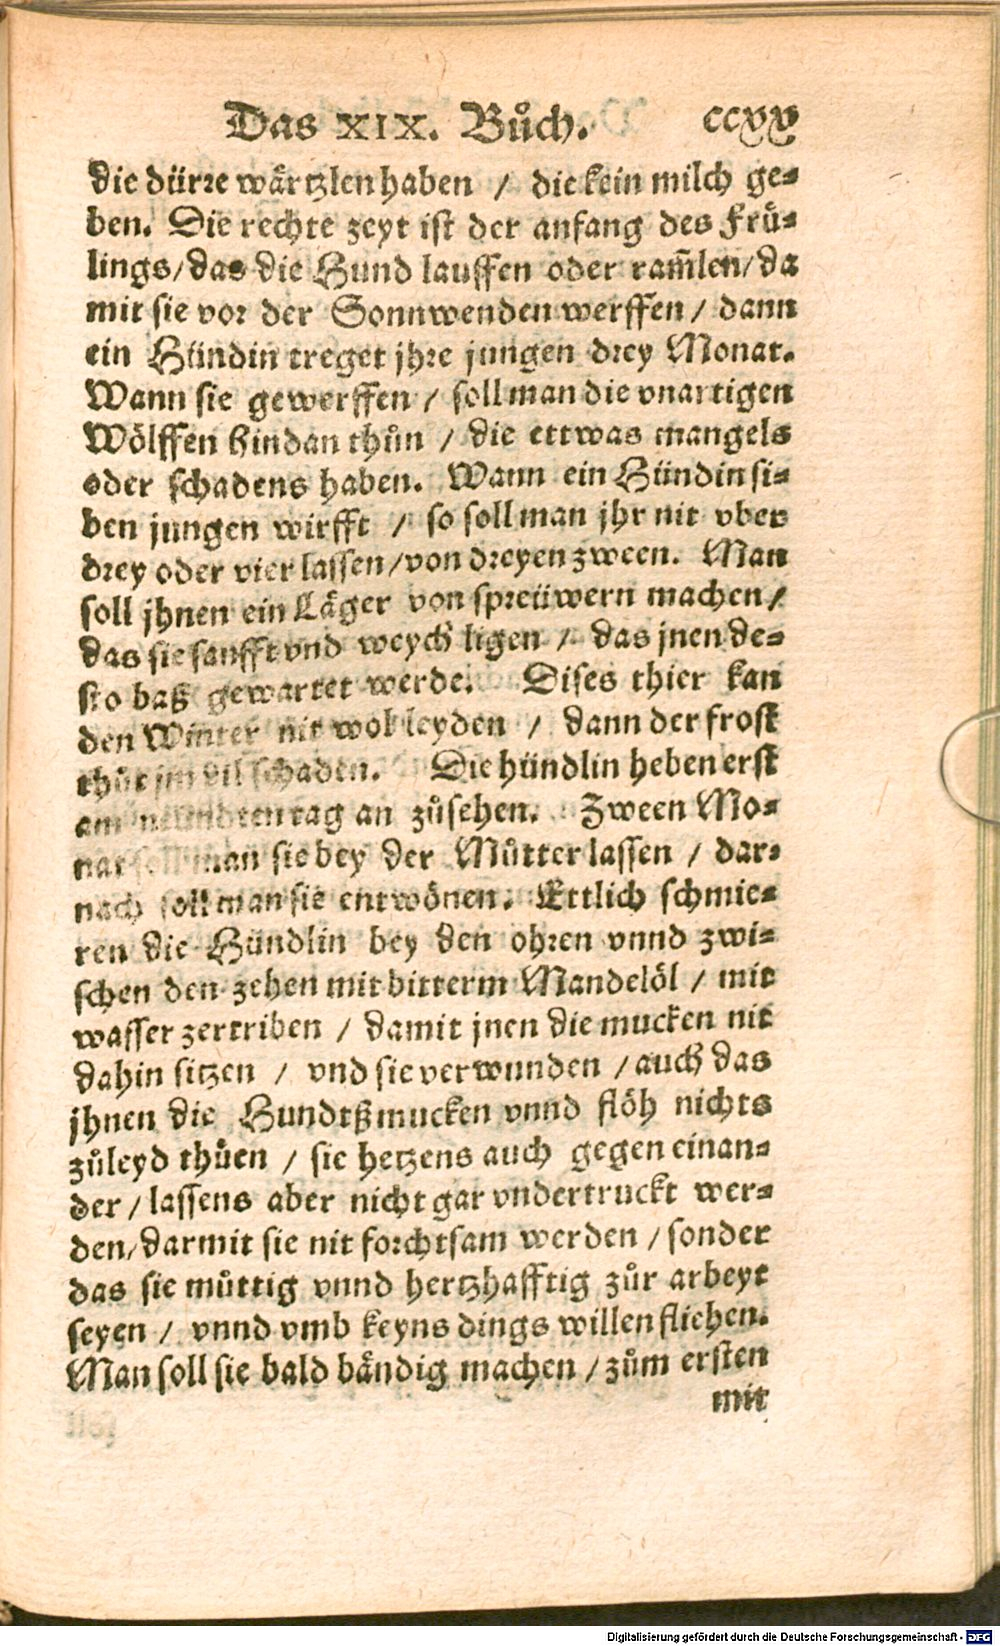 Das XIX. Bůch. ccxx
die dürre wärtzlen haben / die kein milch ge⸗
ben. Die rechte zeyt ist der anfang des Frü⸗
lings / das die Hund lauffen oder ram̃len / da
mit sie vor der Sonnwenden werffen / dann
ein Hündin treget jhre jungen drey Monat.
Wann sie gewerffen / soll man die vnartigen
Wölffen hindan thůn / die ettwas mangels
oder schadens haben. Wann ein Hündin si⸗
ben jungen wirfft / so soll man jhr nit vber
drey oder vier lassen / von dreyen zween. Man
soll jhnen ein Läger von spreüwern machen /
das sie sanfft vnd weych ligen / das jnen de⸗
sto baß gewartet werde. Dises thier kan
den Winter nit wol leyden / dann der frost
thůt jm vil schaden. Die hündlin heben erst
am neündten tag an zůsehen. Zween Mo⸗
nat soll man sie bey der Můtter lassen / dar⸗
nach soll man sie entwönen. Ettlich schmie⸗
ren die Hündlin bey den ohren vnnd zwi⸗
schen den zehen mit bitterm Mandelöl / mit
wasser zertriben / damit jnen die mucken nit
dahin sitzen / vnd sie verwunden / auch das
jhnen die Hundtßmucken vnnd flöh nichts
zůleyd thůen / sie hetzens auch gegen einan⸗
der / lassens aber nicht gar vndertruckt wer⸗
den / darmit sie nit forchtsam werden / sonder
das sie můttig vnnd hertzhafftig zůr arbeyt
seyen / vnnd vmb keyns dings willen fliehen.
Man soll sie bald bändig machen / zům ersten
mit
Digitalisierung gefördert durch die Deutsche Forschungsgemeinschaft - DFG